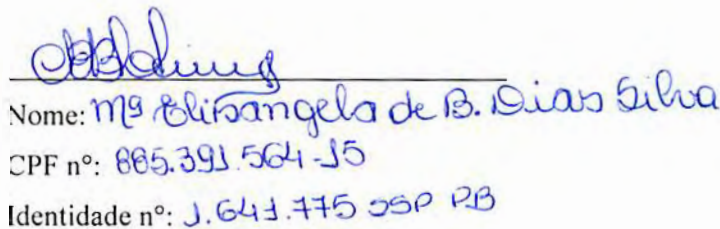 Nome: Mª Elisangela de B. Dias Silva
CPF nº: 885.391.564-15
Identidade nº: 1.641.775 SSP PB